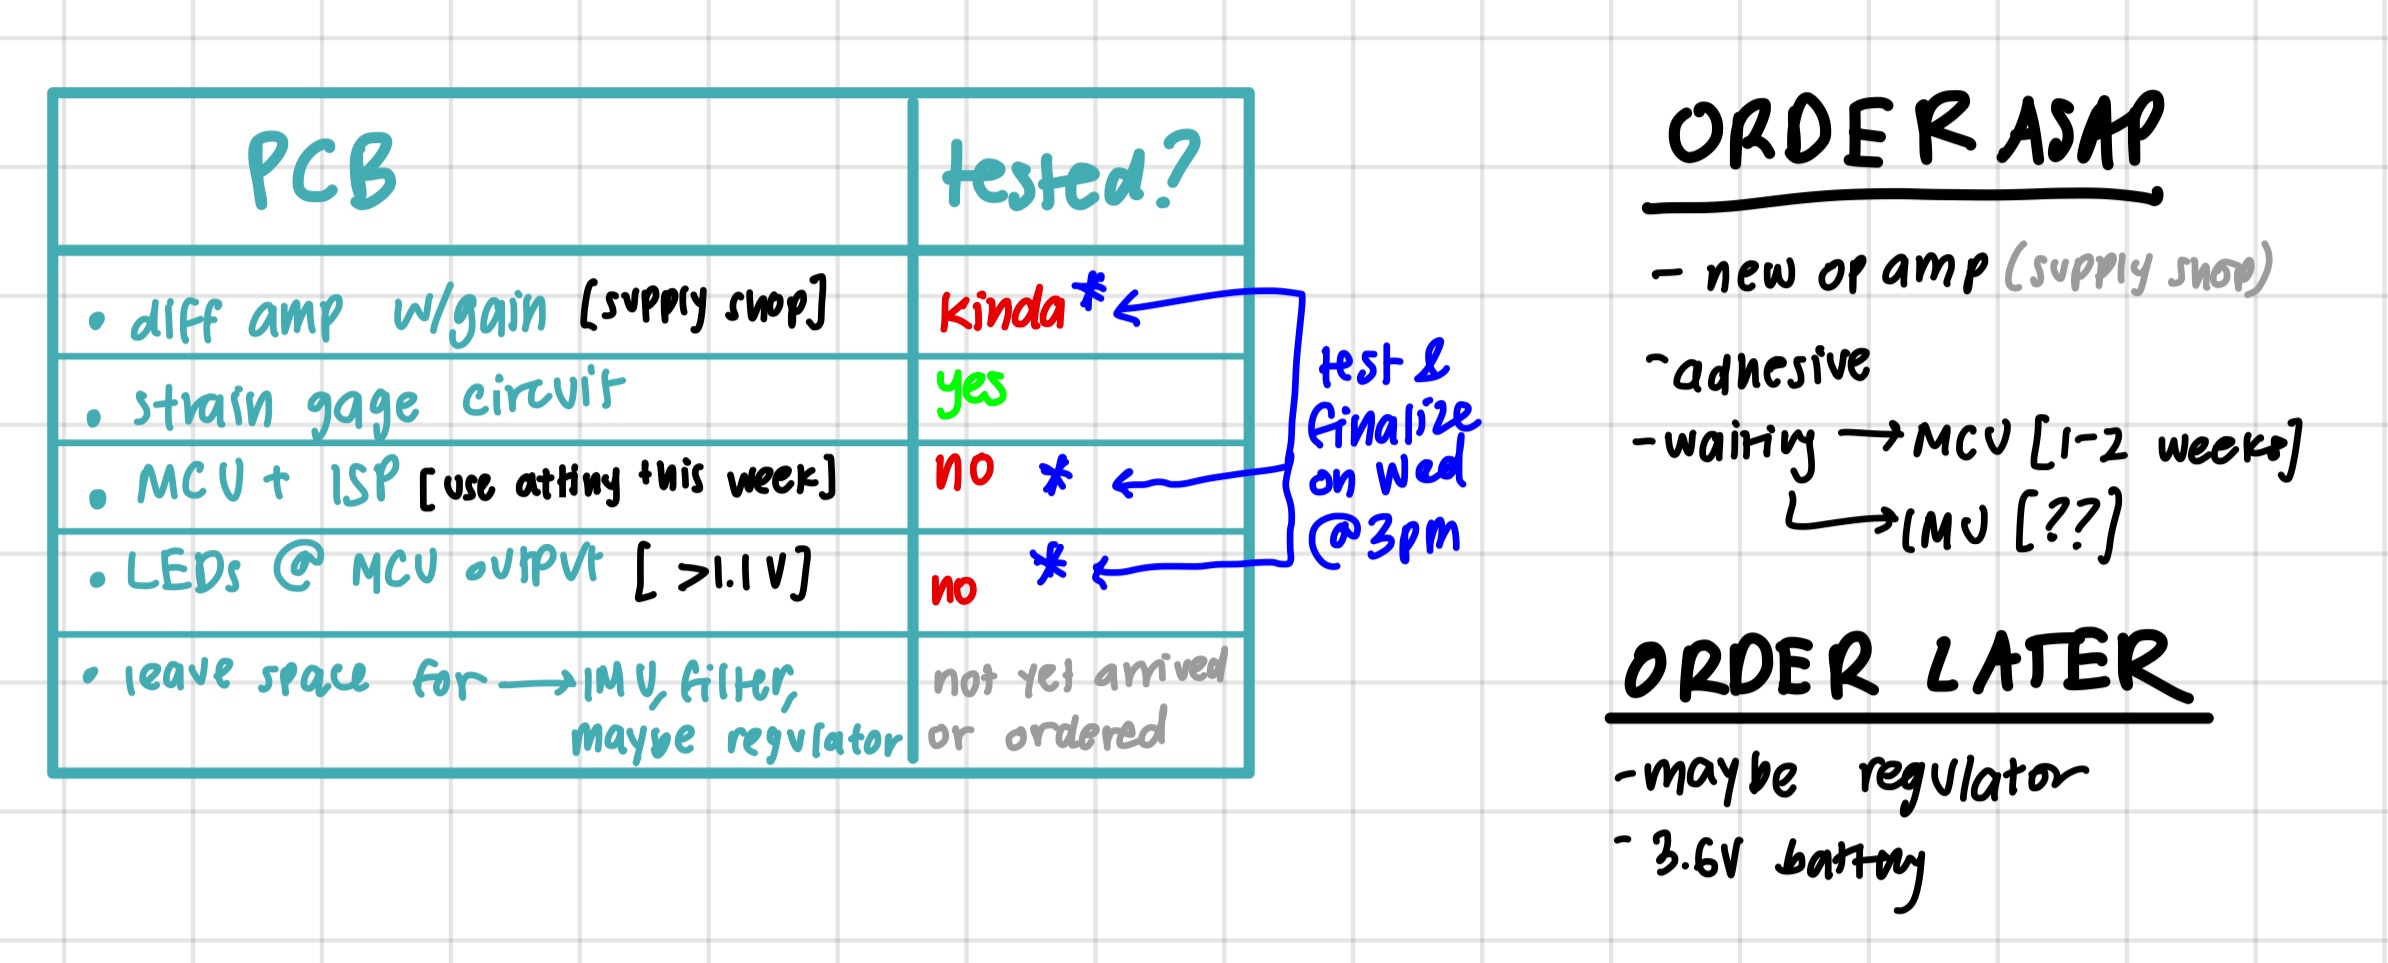 PCB tested?
• diff amp w/gain [supply shop] kinda*
• strain gage circuit yes
• MCU + ISP [use attiny this week] no *
• LEDs @ MCU output [ >1.1 V] no *
• leave space for → IMU, filter, not yet arrived
maybe regulator or ordered
test &
finalize
on Wed
@3pm
ORDER ASAP
- new op amp (supply shop)
- adhesive
- waiting → MCU [1-2 weeks]
→ IMU [??]
ORDER LATER
- maybe regulator
- 3.6V battery